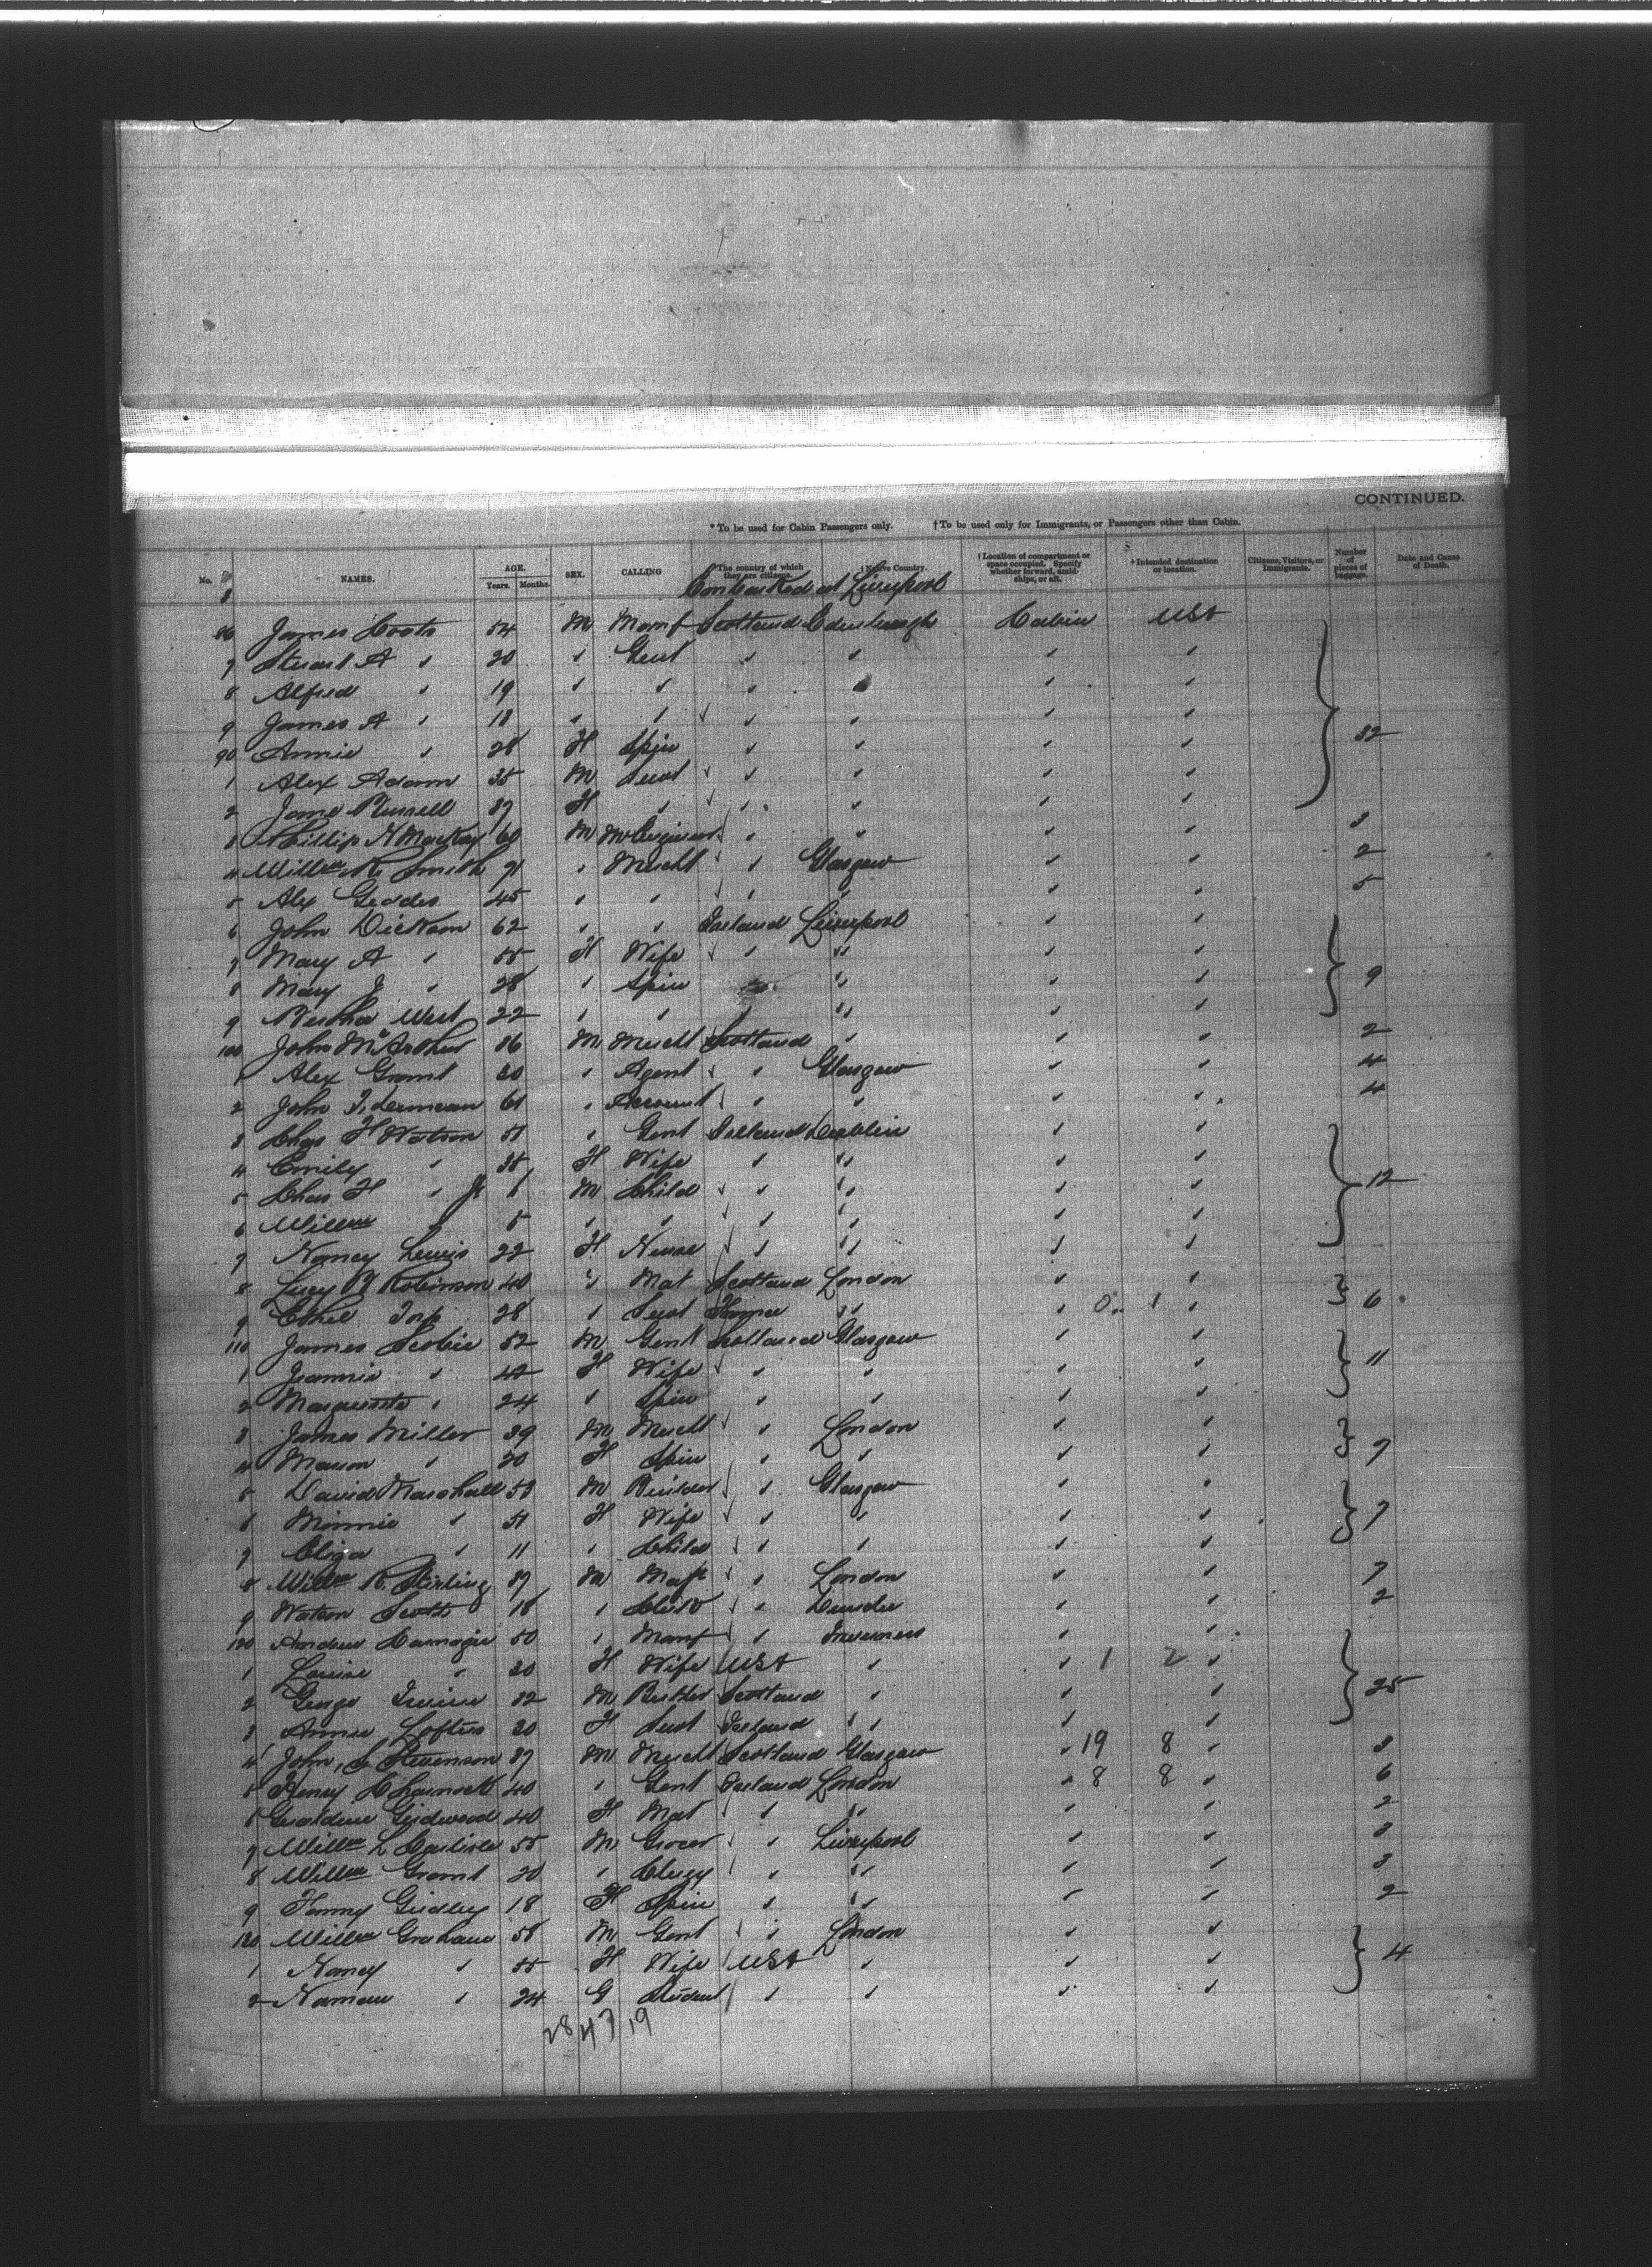 CONTINUED.
* To be used for Cabin Passengers only. † To be used only for Immigrants, or Passengers other than Cabin.
No. NAMES. AGE. Years. Months. SEX. CALLING *The country of which they are citizens. †Native Country. †Location of compartment or space occupied. Specify whether forward, amidships, or aft. †Intended destination or location. Citizens, Visitors, or Immigrants. Number of pieces of baggage. Date and Cause of Death.
Embarked at Liverpool
86 James Coats 54 M Manf Scotland Edinburgh Cabin USA
7 Stuart A " 20 " Gent " " " "
8 Alfred " 19 " " " " " "
9 James A " 18 " " " " " "
90 Annie " 28 F Spin " " " " 32
1 Alex Adam 35 M Servt " " " "
2 Jane Russell 37 F " " " " "
3 Phillip N MacKay 60 M " " " " 3
4 Willm R Smith 71 " Mercht " Glasgow " " 2
5 Alex Geddes 45 " " " " " " 5
6 John Dickson 62 " " Ireland Liverpool " "
7 Mary A " 55 F Wife " " " "
8 Mary J " 28 " Spin " " " " 9
9 Bertha West 22 " " " " " "
100 John McArthur 36 M Mercht Scotland " " " 2
1 Alex Grant 30 " Agent " Glasgow " " 4
2 John 61 " Account " " " " 4
3 Chas H Watson 51 " Gent Ireland Dublin " "
4 Emily " 38 F Wife " " " "
5 Chas H " Jr 6 M Child " " " " 12
6 Willm " 5 " " " " " "
7 Nancy Lewis 22 F Nurse " " " "
8 Lucy Robinson 40 " Mat Scotland London " "
9 Ethel 28 " Servt France " " 0 1 " 6
110 James Scobie 52 M Gent Scotland Glasgow " "
1 Jeannie " 42 F Wife " " " " 11
2 Marguerite " 24 " Spin " " " "
3 James Miller 39 M Mercht " London " "
4 Marion " 20 F Spin " " " " 7
5 David Marshall 53 M Builder " Glasgow " "
6 Minnie " 51 F Wife " " " " 7
7 Eliza " 11 " Child " " " "
8 Willm R Stirling 37 M " London " " 7
9 Watson Scott 18 " " Dundee " " 2
120 Andrew Carnegie 50 " Manf " Inverness " "
1 Louise " 30 F Wife USA " " 1 2 "
2 George Irvine 32 M Butler Scotland " " " 25
3 Annie Loftus 30 F Servt Ireland " " "
4 John S Stevenson 37 M Mercht Scotland Glasgow " 19 8 " 3
5 Henry Charnock 40 " Gent Ireland London " 8 8 " 6
6 Geraldine Girdwood 40 F Mat " " " " 2
7 Willm L Carlisle 55 M Grocer " Liverpool " " 3
8 Willm Grant 30 " Clergy " " " " 3
9 Fanny Gridley 18 F Spin " " " " 2
130 Willm Graham 58 M Gent " London " "
1 Nancy " 55 F Wife USA " " " 4
2 " 24 Student " " " "
28 47 19